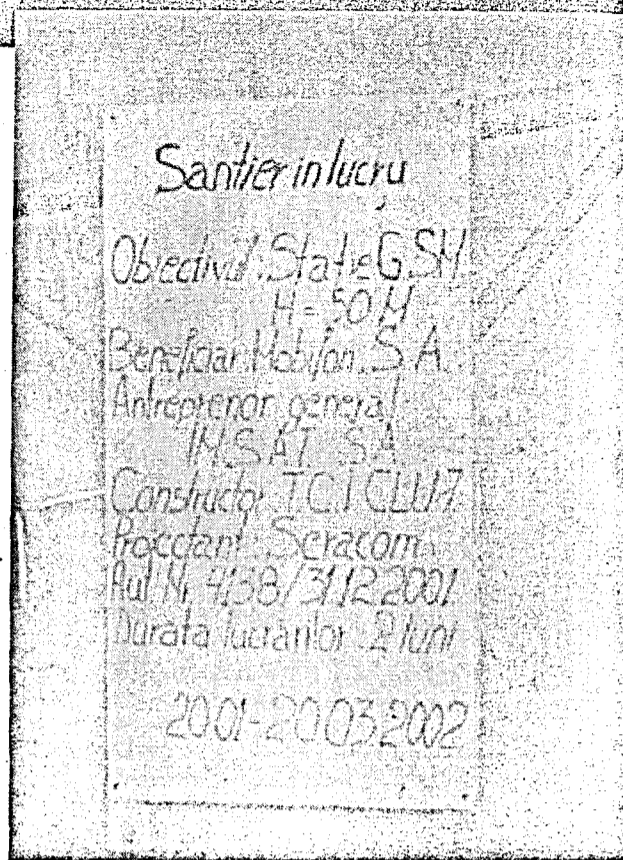 Santier in lucru
Obiectivul: Statie GSM
H = 50 M
Beneficiar: Mobifon S.A.
Antreprenor general
IMSAT SA
Constructor T.C.I CLUJ
Proiectant: Seracom
Aut Nr 4138/31.12.2001
Durata lucrarilor 2 luni
20.01-20.03.2002